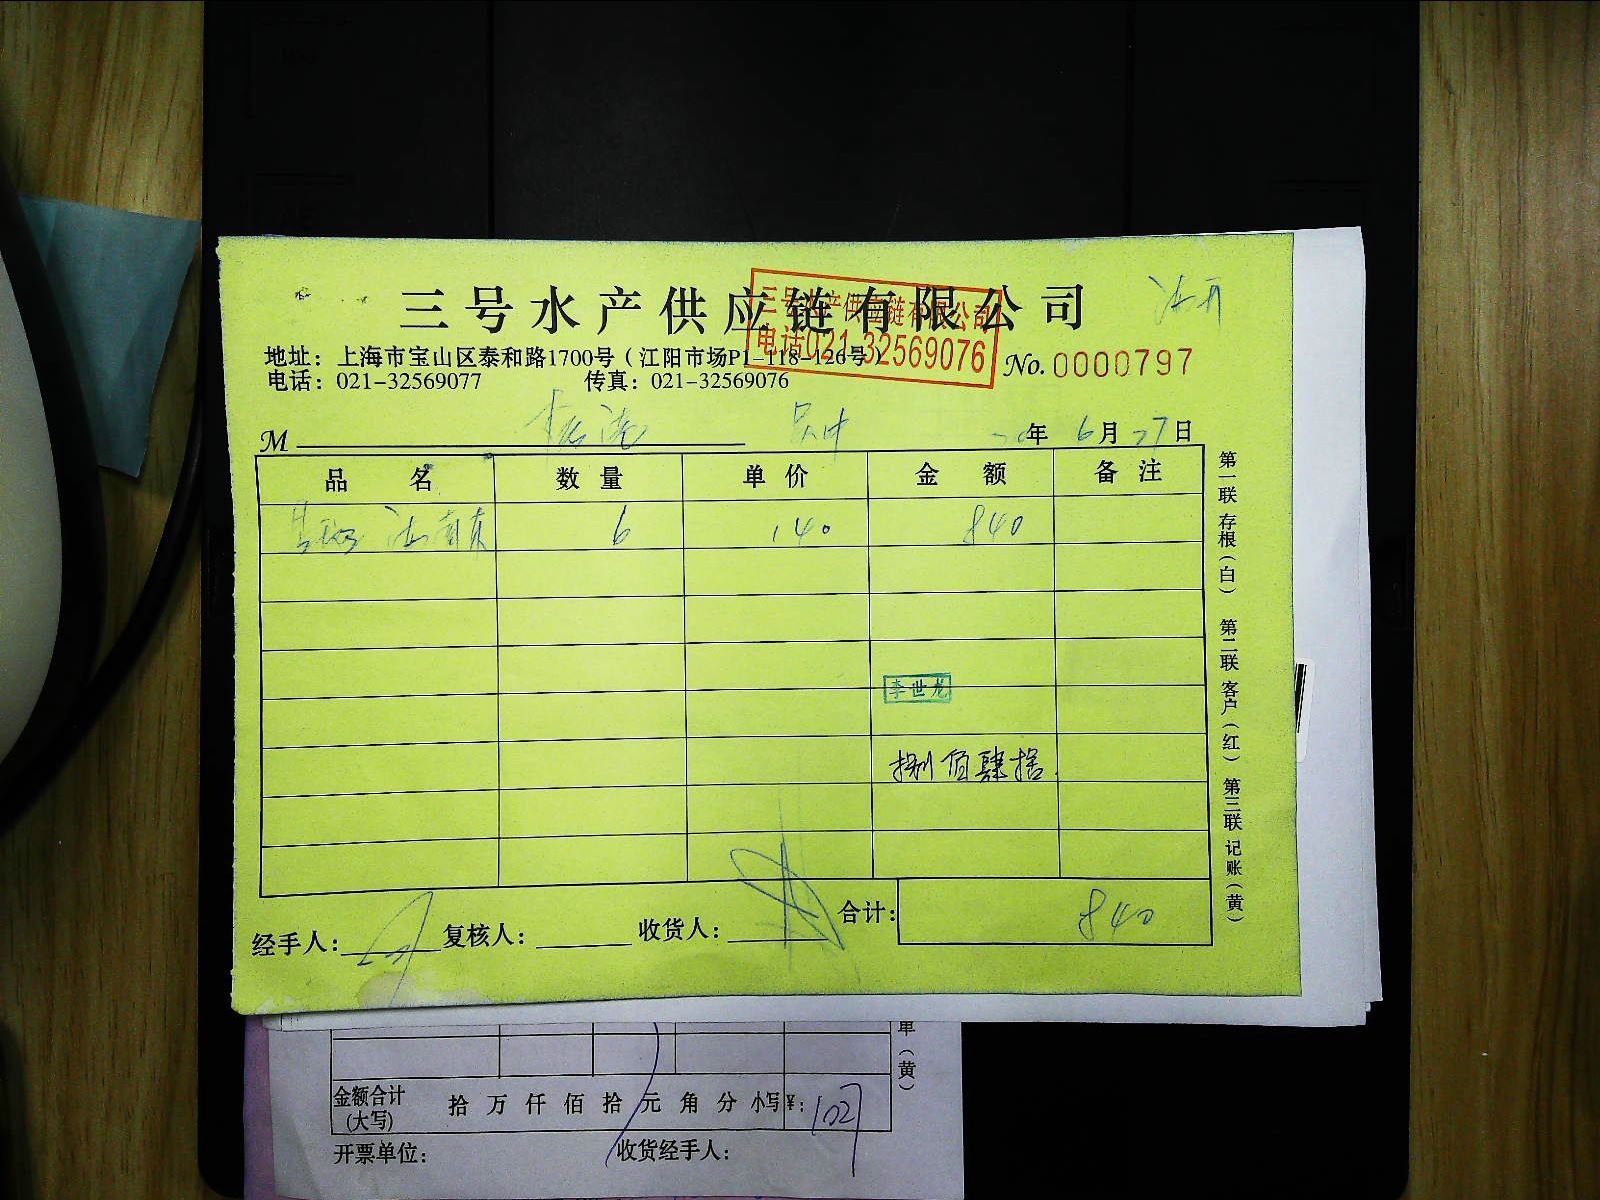 三号水产供应链有限公司
三号水产供应链有限公司
电话021-32569076
地址：上海市宝山区泰和路1700号（江阳市场P1-118-126号）
No.0000797
电话：021-32569077 传真：021-32569076
M 年 6月27日
品名 数量 单价 金额 备注
6 140 840
李世龙
捌佰肆拾
合计：840
经手人： 复核人： 收货人：
第一联 存根（白） 第二联 客户（红） 第三联 记账（黄）
单（黄）
金额合计（大写） 拾万仟佰拾元角分 小写¥：
开票单位： 收货经手人：